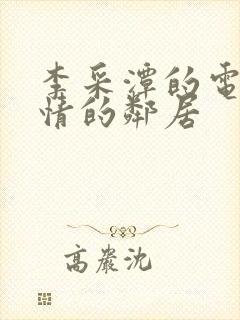 李采潭的電
情的鄰居
高嚴沈